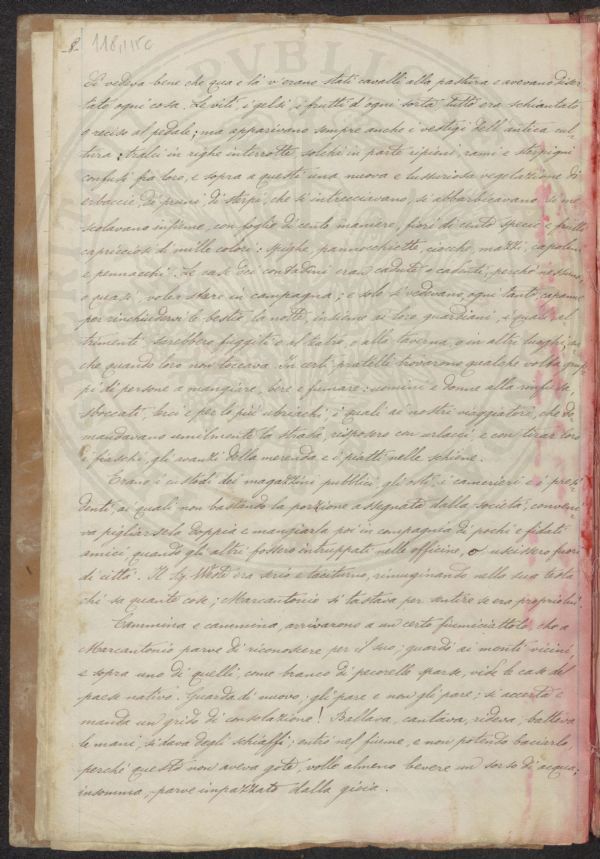 8.
118,115c
Si vedeva bene che qua e là v'erano stati cavalli alla pastura e avevano diser-
tato ogni cosa. Le viti, i gelsi, i frutti d'ogni sorta tutto era schiantato
o reciso al pedale; ma apparivano sempre anche i vestigi dell'antica cul-
tura: tralci in righe interrotte, solchi in parte ripieni, rami e sterpigni
confusi fra loro, e sopra a questi una nuova e lussuriosa vegetazione di
erbacce, di pruni, di sterpi, che si intrecciavano, si abbarbicavano, si me-
scolavano insieme, con foglie di cento maniere, fiori di cento specie e frutti
capricciosi di mille colori: spighe, pannocchiette, ciocche, mazzi, capolini
e pennacchi. Le case dei contadini eran cadute o cadenti, perchè nessuno,
o quasi, volea stare in campagna; e solo si vedevano, ogni tanto, capanne
per rinchiudervi le bestie, la notte, insieme ai loro guardiani, i quali al-
trimenti sarebbero fuggiti o al teatro, o alla taverna, o in altri luoghi, an-
che quando loro non toccava. In certi pratelli trovarono qualche volta grup-
pi di persone a mangiare, bere e fumare: uomini e donne alla rinfusa
sboccati, lerci e per lo più ubriachi, i quali ai nostri viaggiatori, che do-
mandavano umilmente la strada, risposero con urlacci, e con tirar loro
i fiaschi, gli avanzi della merenda e i piatti nelle schiene.
Erano i custodi dei magazzini pubblici, gli osti, i cancerieri e i presi-
denti, ai quali non bastando la porzione assegnata dalla società, conveni-
va pigliarsela doppia e mangiarla poi in compagnia di pochi e fidati
amici quando gli altri fossero intruppati nelle officine, o uscissero fuori
di città. Il sig. Wode era serio e taciturno, rimuginando nella sua testa
chi sa quante cose; Marcantonio si tastava per sentire se era proprio lui.
Cammina e cammina, arrivarono a un certo fiumiciattolo che a
Marcantonio parve di riconoscere per il suo; guardò ai monti vicini,
e sopra uno di quelli, come branco di pecorelle sparse, vide le case del
paese nativo. Guarda di nuovo: gli pare e non gli pare; si accerta e
manda un grido di consolazione! Ballava, cantava, rideva, batteva
le mani, si dava degli schiaffi; entrò nel fiume, e non potendo baciarlo,
perchè questo non aveva gote, volle almeno bevere un sorso di acqua;
insomma, parve impazzato dalla gioia.